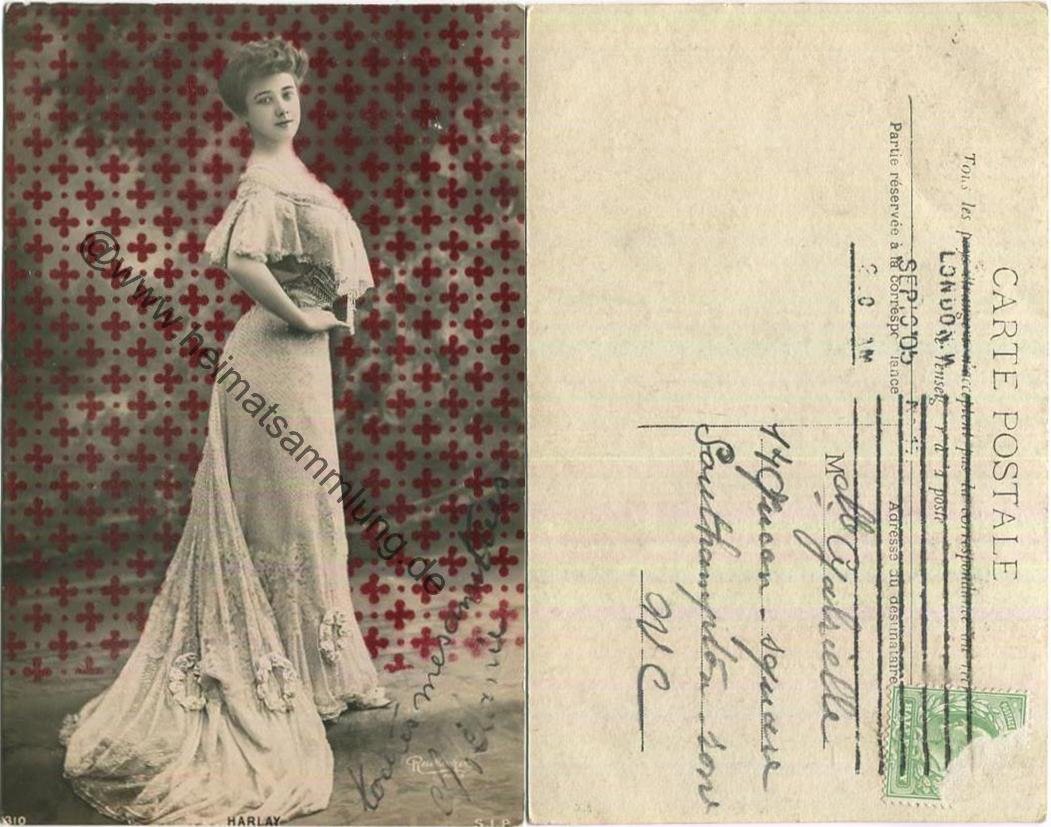 @www.heimatsammlung.de
toutes mes amities
Reutlinger
310
HARLAY
S.I.P.
CARTE POSTALE
Tous les pays étrangers n'acceptent pas la correspondance au recto
à la poste
Partie réservée à la correspondance
Adresse du destinataire
LONDON. W
SEP 10 05
Mlle Gabrielle
14 Queen-square
Southampton row
W C